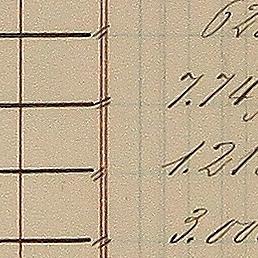 62
7.74
1.21
3.00